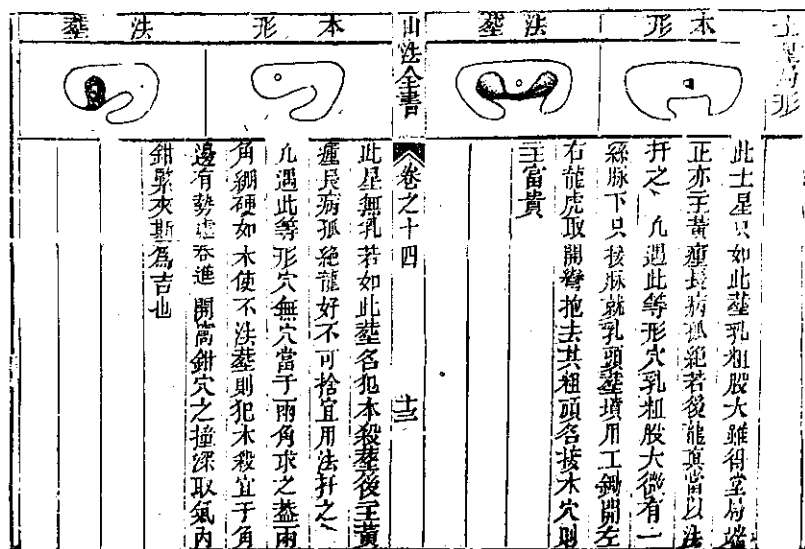 土星局形
本形
法塟
此土星只如此塟乳粗股大雖得堂局端
正亦主黃瘇長病孤絶若後龍真當以法
扞之凢遇此等形穴乳粗股大微有一
綠脉下只接脉就乳頭塟墳用工鋤開左
右龍虎取開彎抱去其粗頭名接木穴則
主富貴
山法全書
卷之十四
十三
本形
法塟
此星無乳若如此塟名犯本殺塟後主黃
瘇長病孤絶龍好不可捨宜用法扞之
凢遇此等形穴無穴當于兩角求之葢兩
角綳硬如木使不法塟則犯木殺宜于角
邊有勢處吞進開窩鉗穴之撞深取氣內
鉗緊夾斯爲吉也